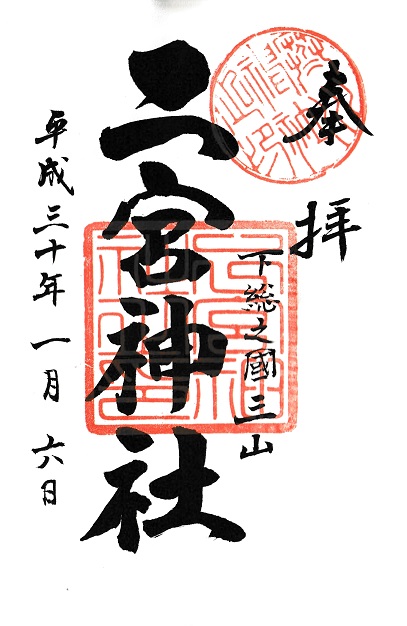 奉拝
下総之國三山
二宮神社
平成三十年一月六日